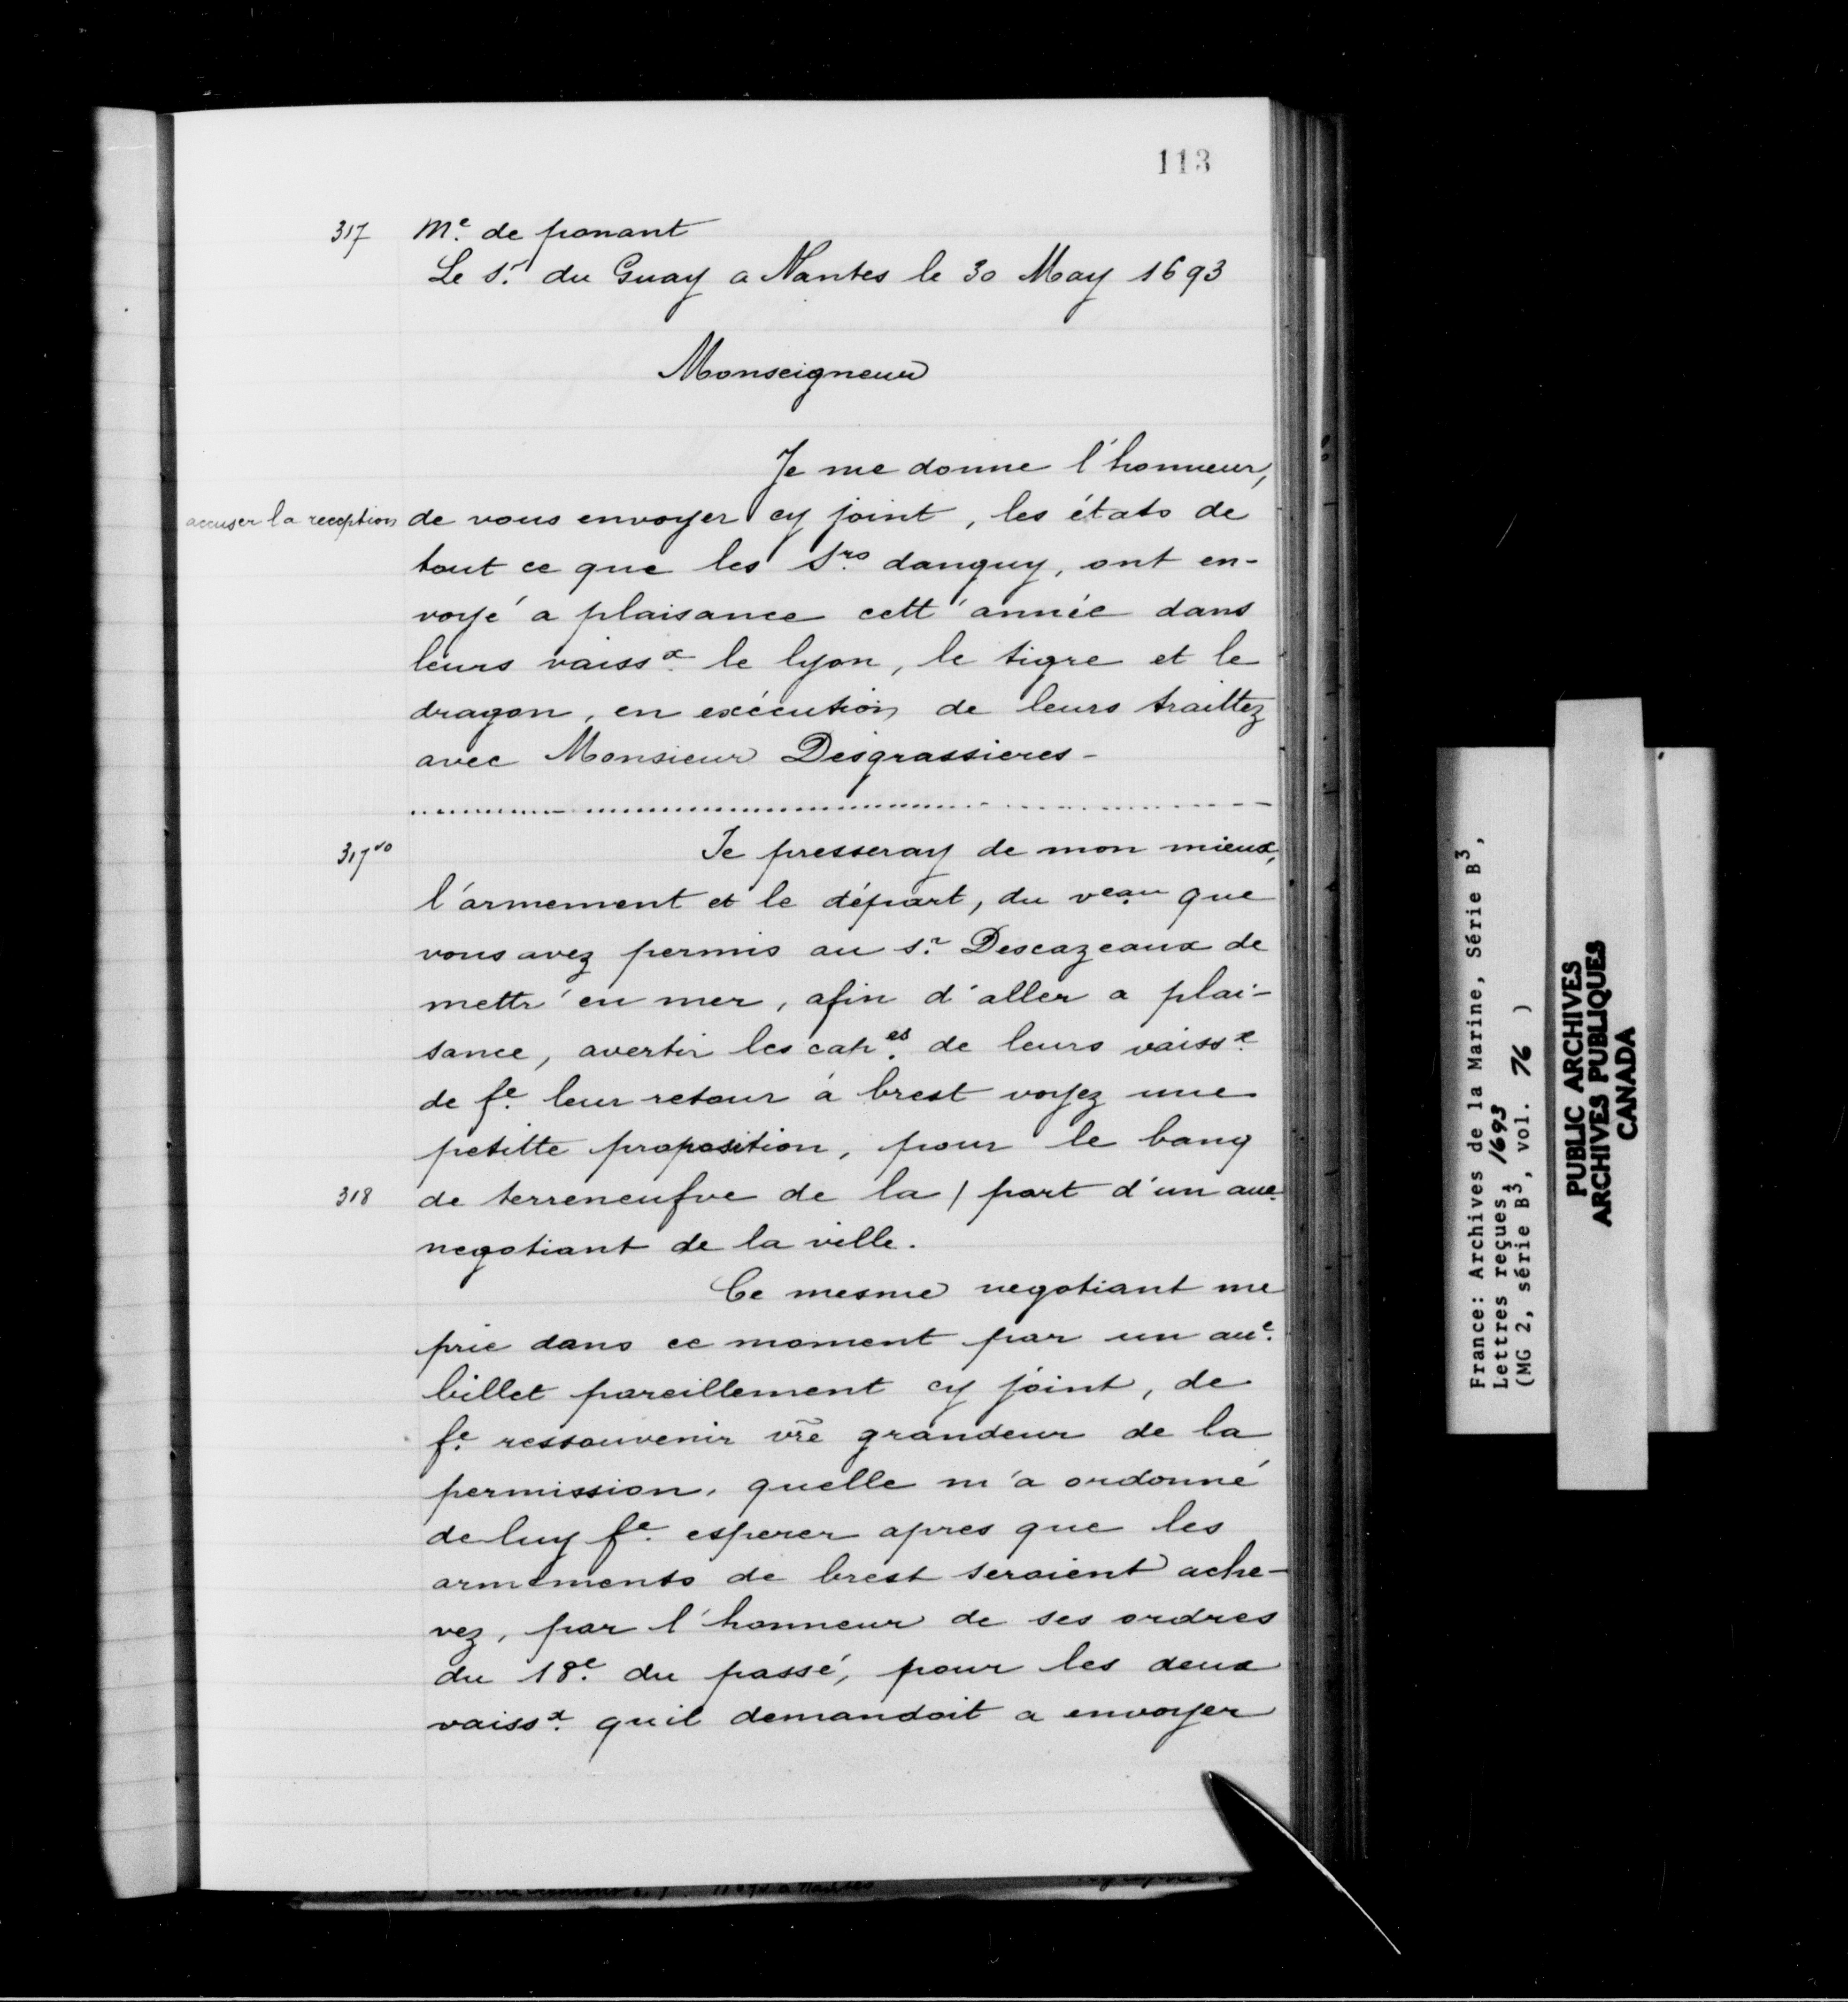 113
317 Me. de ponant
Le Sr. du Guay a Nantes le 30 May 1693
Monseigneur
Je me donne l'honneur,
accuser la reception de vous envoyer cy joint, les états de
tout ce que les Srs. danguy, ont en-
voyé a plaisance cett'année dans
leurs vaissx. le lyon, le tigre et le
dragon, en exécution de leurs traittez
avec Monsieur Desgrassieres -
317vo Je presseray de mon mieux,
l'armement et le départ, du veau. que
vous avez permis au sr. Descazeaux de
mettr'en mer, afin d'aller a plai-
sance, avertir les capes. de leurs vaissx.
de fe. leur retour à brest voyez une
petitte proposition, pour le banq
318 de terreneufve de la / part d'un aue.
negotiant de la ville.
Ce mesme negotiant me
prie dans ce moment par un aue.
billet pareillement cy joint, de
fe. ressouvenir vr̃e grandeur de la
permission, quelle m'a ordonné
de luy fe. esperer apres que les
armements de brest seroient ache-
vez, par l'honneur de ses ordres
du 18e. du passé, pour les deux
vaissx. quil demandoit a envoyer
France: Archives de la Marine, Série B3,
Lettres reçues, 1693
(MG 2, série B3, vol. 76 )
PUBLIC ARCHIVES
ARCHIVES PUBLIQUES
CANADA